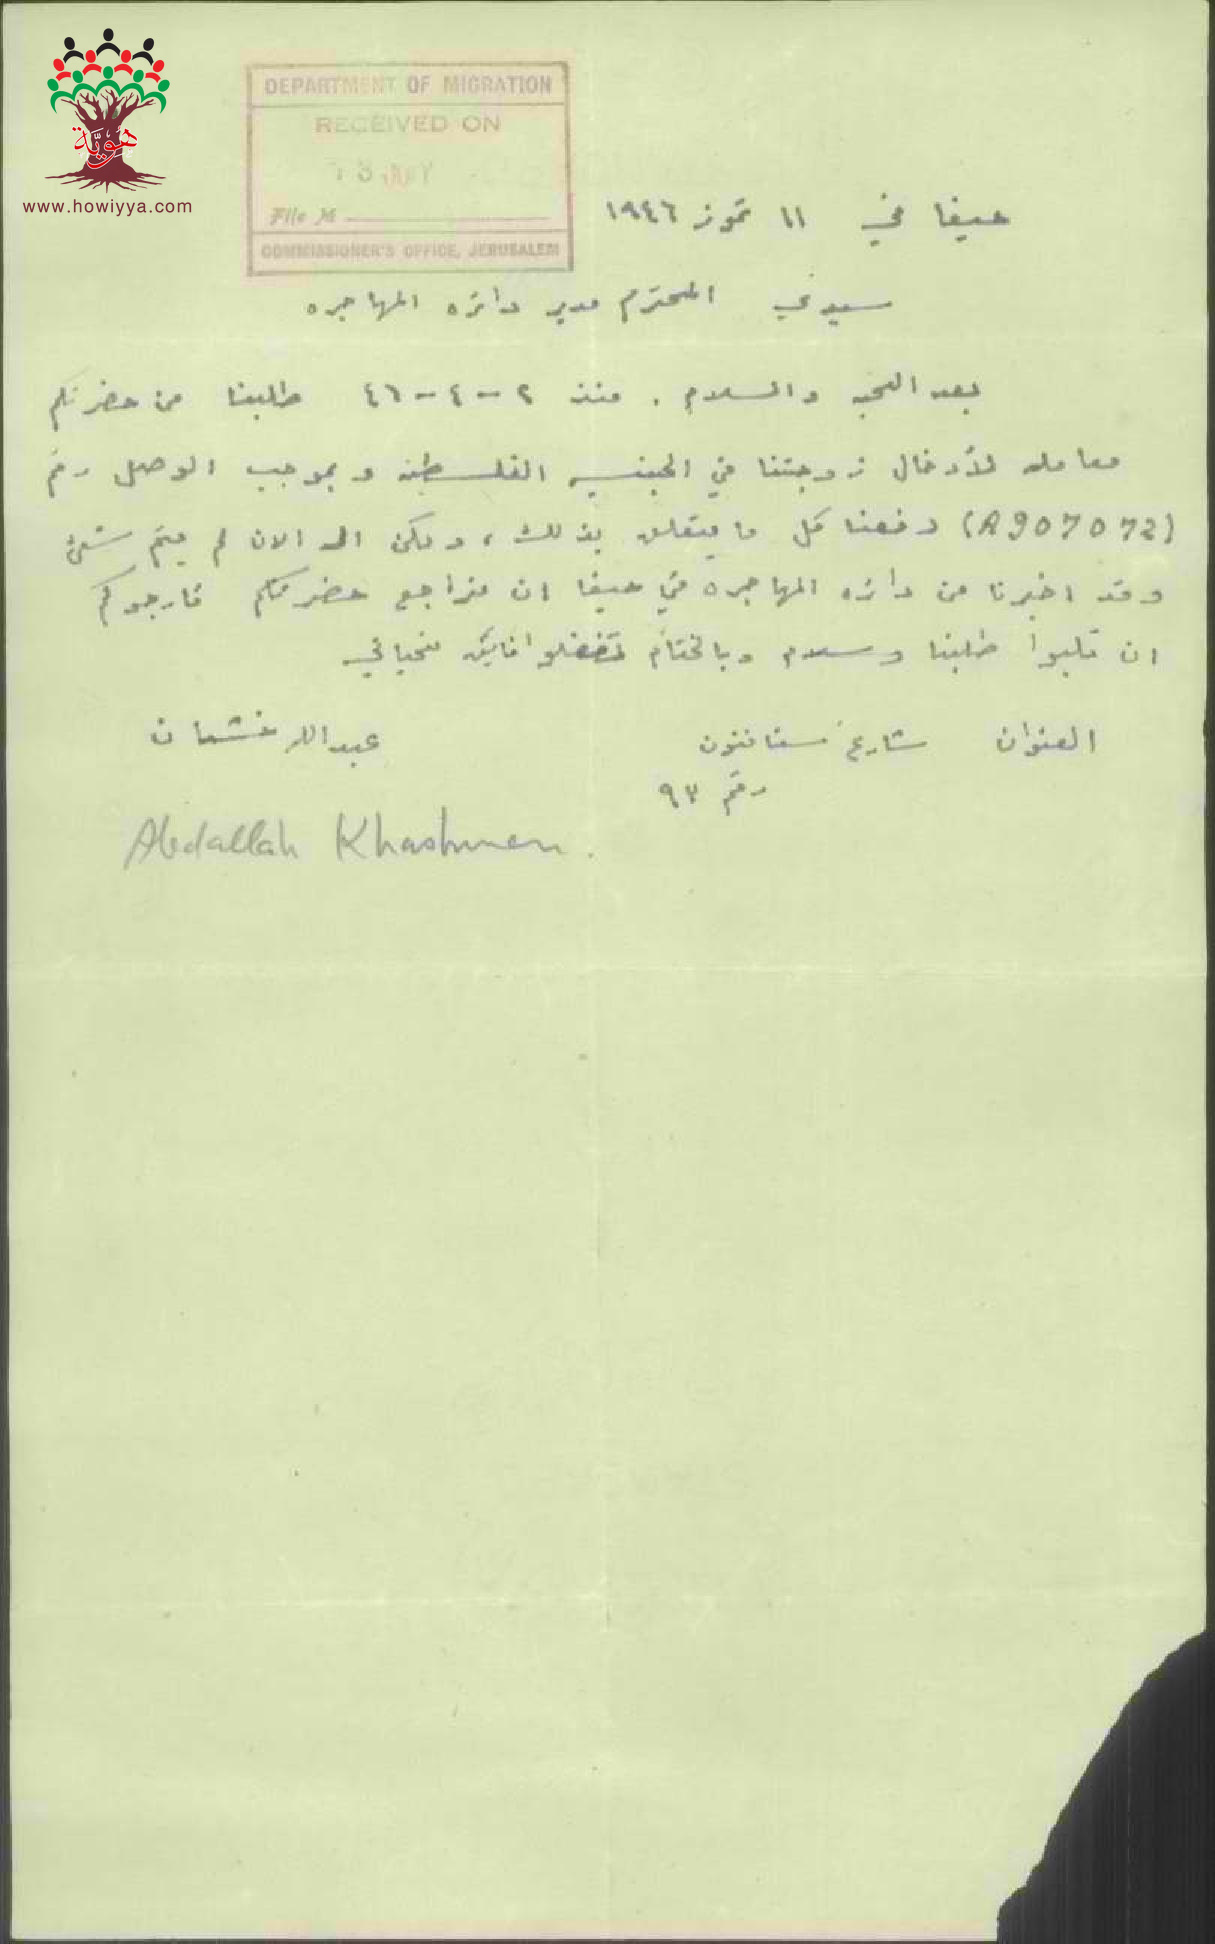 هوية
www.howiyya.com
DEPARTMENT OF MIGRATION
RECEIVED ON
File №
COMMISSIONER'S OFFICE, JERUSALEM
حيفا في ١١ تموز ١٩٤٦
سيدي المحترم مدير دائره المهاجره
بعد التحيه والسلام . منذ ٢-٤-٤٦ طلبنا من حضرتكم
معامله لأدخال زوجتنا في الجنسيه الفلسطينه وبموجب الوصل رقم
(A907072) دفعنا كل ما يتعلق بذلك ، ولكن الى الان لم يتم شئ
وقد اخبرنا من دائره المهاجره في حيفا ان نراجع حضرتكم فارجوكم
ان تلبوا طلبنا وسلام وبالختام تفضلوا فايق تحياتي
العنوان شارع ستانتون عبدالله خشمان
رقم ٩٣
Abdallah Khashman.